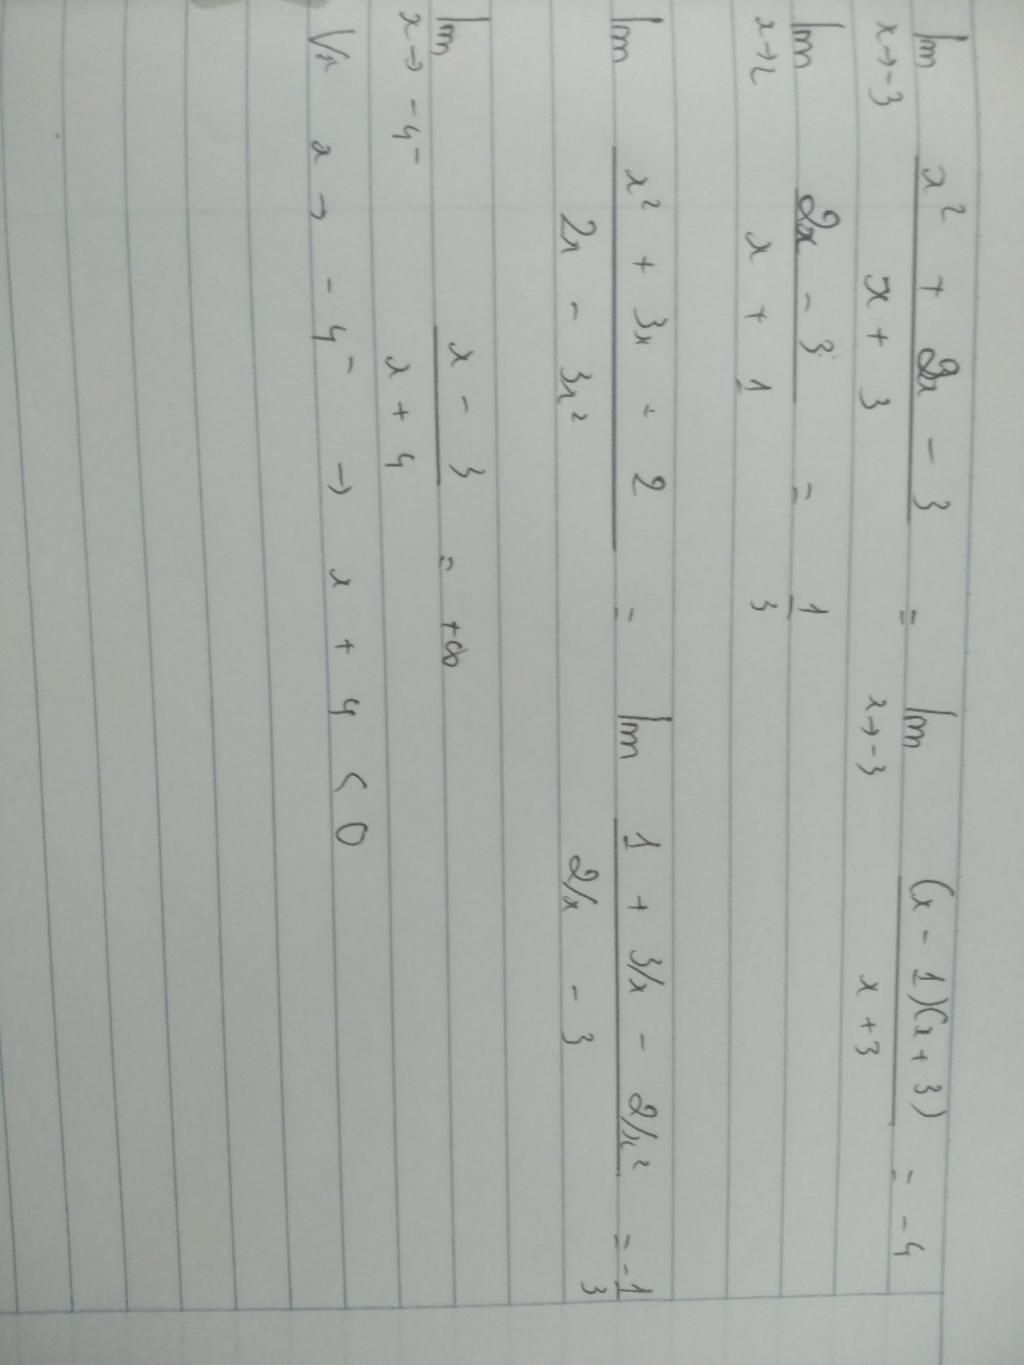 lim x→-3 (x² + 2x - 3)/(x + 3) = lim x→-3 ((x - 1)(x + 3))/(x + 3) = -4
lim x→2 (2x - 3)/(x + 1) = 1/3
lim (x² + 3x - 2)/(2x - 3x²) = lim (1 + 3/x - 2/x²)/(2/x - 3) = -1/3
lim x→-4⁻ (x - 3)/(x + 4) = +∞
Vì x → -4⁻ → x + 4 < 0